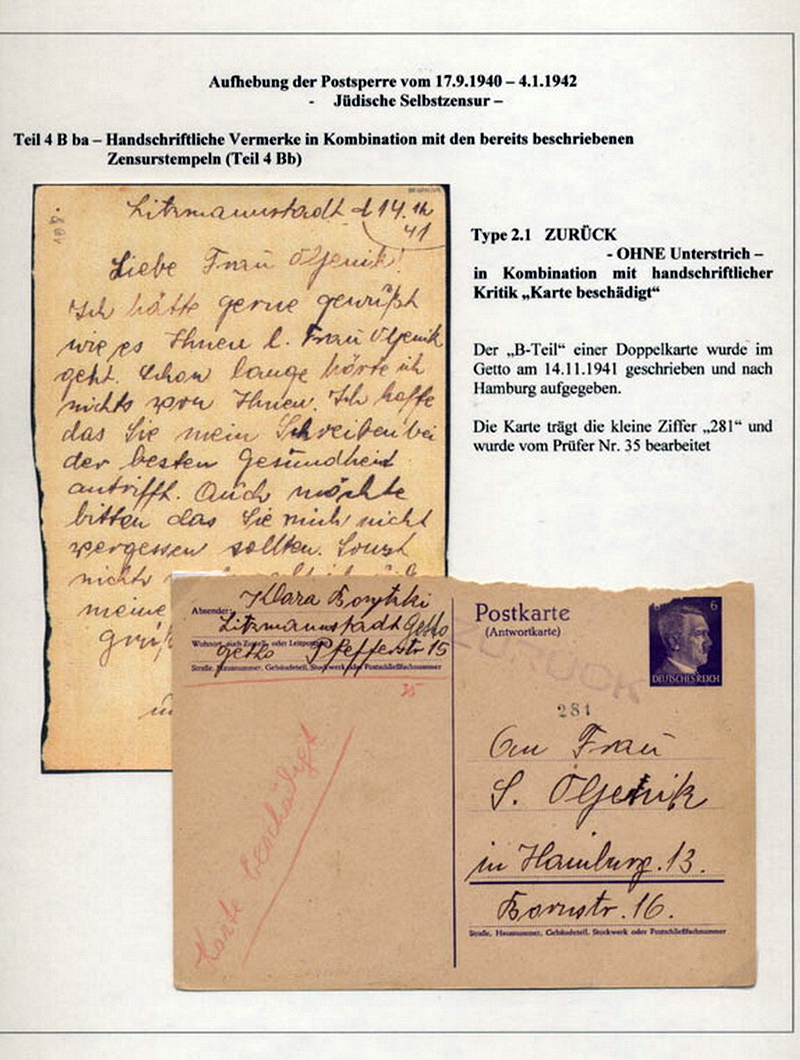 Aufhebung der Postsperre vom 17.9.1940 – 4.1.1942
- Jüdische Selbstzensur –
Teil 4 B ba – Handschriftliche Vermerke in Kombination mit den bereits beschriebenen
Zensurstempeln (Teil 4 Bb)
Litzmannstadt d 14. 11.
41
Liebe Frau Oljenik!
Ich hätte gerne gewußt
wie es Ihnen l. Frau Oljenik
geht. Schon lange hörte ich
nichts von Ihnen. Ich hoffe
das Sie mein Schreiben bei
der besten Gesundheit
antrifft. Auch möchte
bitten das Sie mich nicht
vergessen sollten. Sonst
nichts
meine
Type 2.1 ZURÜCK
- OHNE Unterstrich –
in Kombination mit handschriftlicher
Kritik „Karte beschädigt“
Der „B-Teil“ einer Doppelkarte wurde im
Getto am 14.11.1941 geschrieben und nach
Hamburg aufgegeben.
Die Karte trägt die kleine Ziffer „281“ und
wurde vom Prüfer Nr. 35 bearbeitet
Absender: Klara
Litzmannstadt Getto
Wohnort, auch Zustell- oder Leitpostamt
getto Pfefferstr 15
Straße, Hausnummer, Gebäudeteil, Stockwerk oder Postschließfachnummer
35
Karte beschädigt
Postkarte
(Antwortkarte)
6
DEUTSCHES REICH
ZURÜCK
281
An Frau
S. Oljenik
in Hamburg. 13.
Bornstr. 16.
Straße, Hausnummer, Gebäudeteil, Stockwerk oder Postschließfachnummer